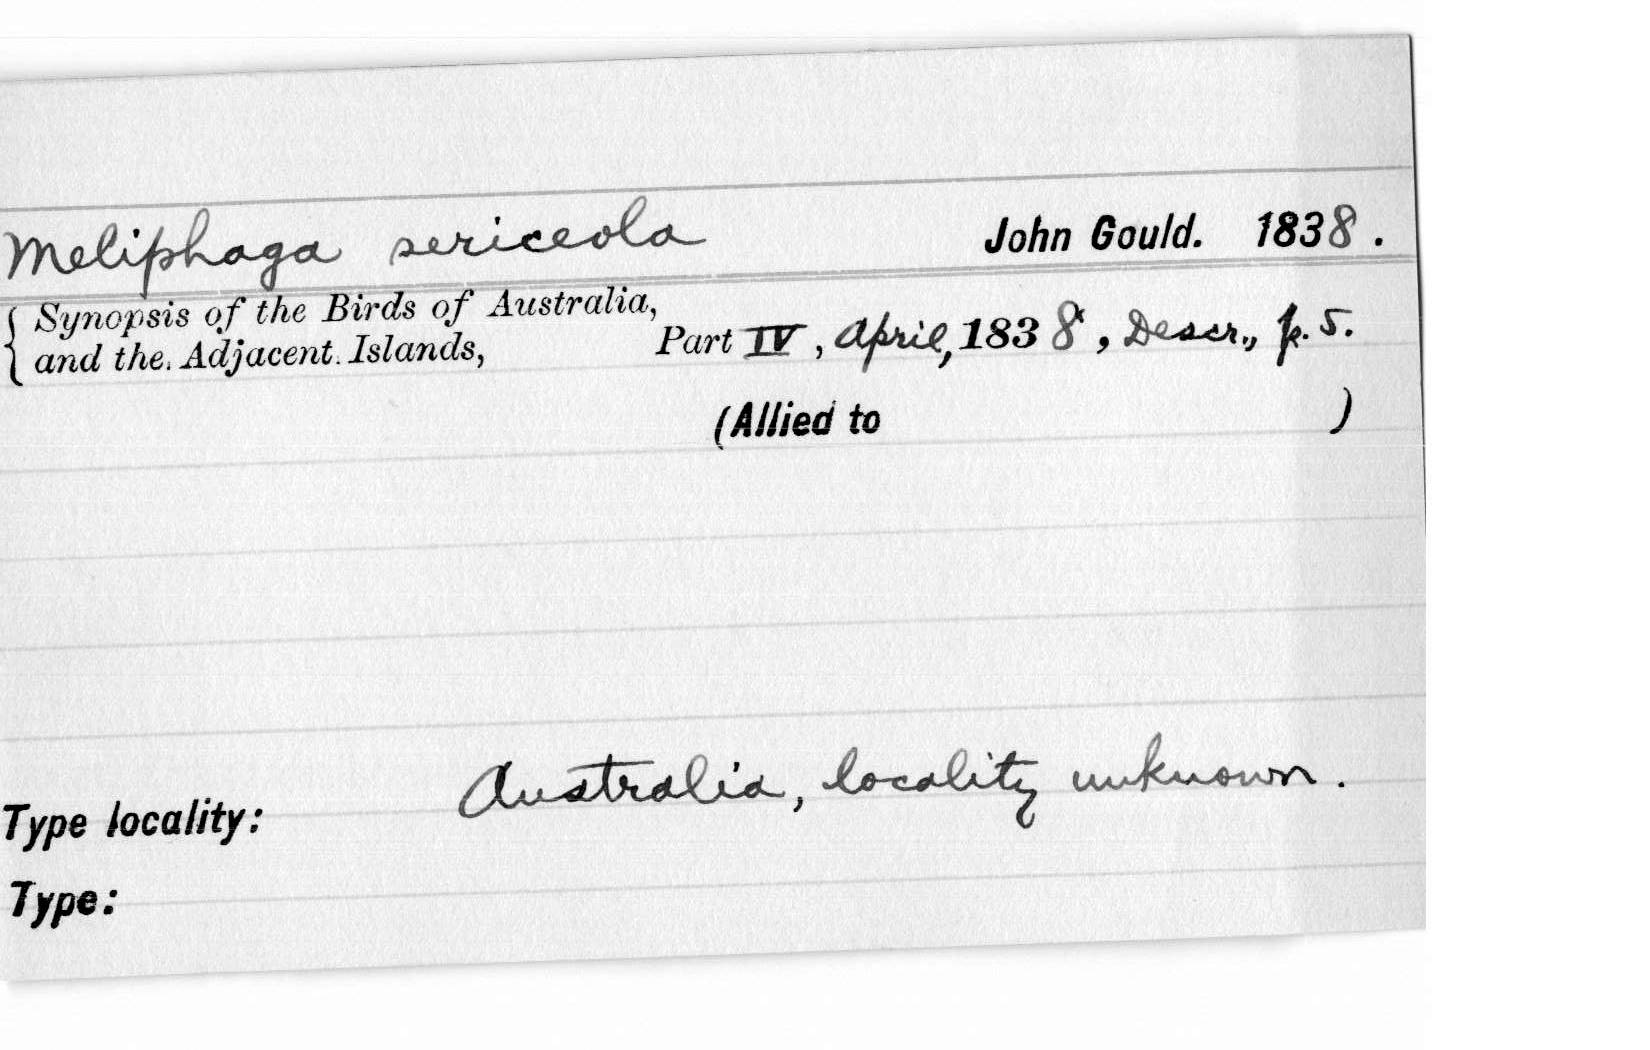 Meliphaga sericeola John Gould. 1838.
{ Synopsis of the Birds of Australia,
and the Adjacent Islands, Part IV, April, 1838, Descr., p. 5.
(Allied to )
Australia, locality unknown.
Type locality:
Type: